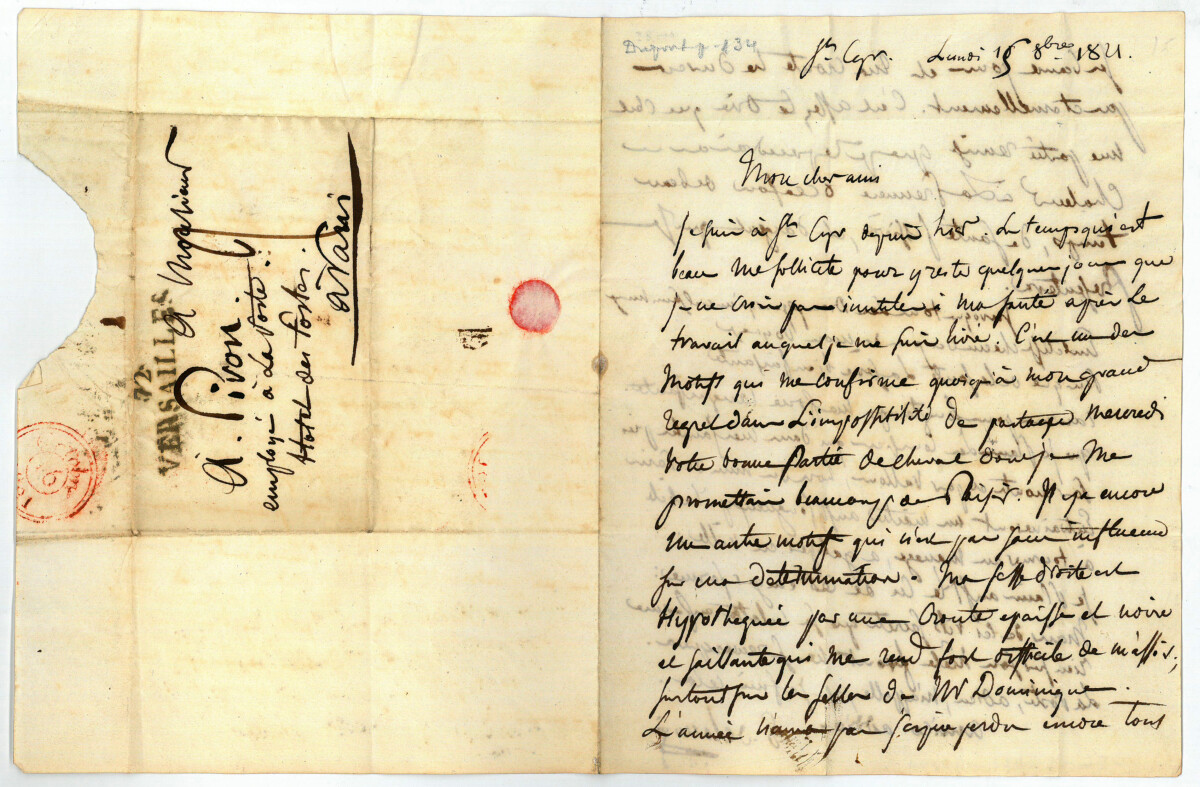 A Monsieur
A. Pivon.
employé à La Poste.
Hotel des Postes.
à Paris
72
VERSAILLES
St Cyr. Lundi 15 8bre 1821.
Mon cher ami
Je suis à St Cyr depuis hier. Le temps qui est
beau me sollicite pour y reste quelques jours que
je ne crois pas inutiles à ma santé après le
travail auquel je me suis livré. C'est un des
motifs qui me confirme quoiqu'à mon grand
regret dans L'impossibilité de partager mercredi
votre bonne Partie de cheval dont je me
promettais beaucoup de Plaisir. Il y a encore
un autre motif qui n'est pas sans influence
sur ma determination. Ma fesse droite est
Hypothequée par une Croute epaisse et noire
et saillante qui me rend fort difficile de m'assoir,
surtout sur les selles de Mr Dominique.
L'année par encore tous